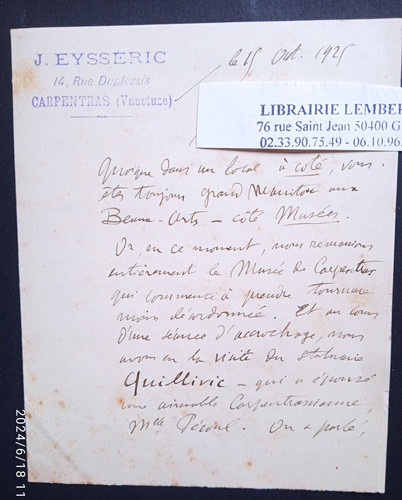 J. EYSSÉRIC
14, Rue Duplessis
CARPENTRAS (Vaucluse)
le 15 Oct. 1925
LIBRAIRIE LEMBER
76 rue Saint Jean 50400 G
02.33.90.75.49 - 06.10.96.
Quoique dans un local à coté, vous
êtes toujours grand Manitou aux
Beaux-Arts - côté Musées.
Or en ce moment, nous remanions
entièrement le Musée de Carpentras
qui commence à prendre tournure
moins désordonnée. Et au cours
d'une séance d'accrochage, nous
avons eu la visite du statuaire
Quillivic - qui a épousé
une aimable Carpentrassienne,
Melle . On a parlé,
2024/6/18 11